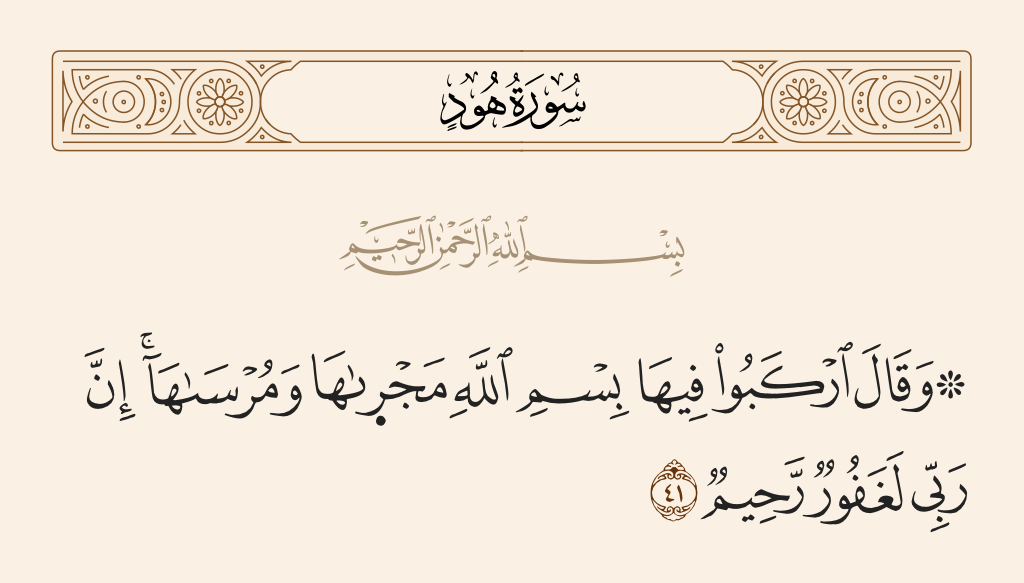 سُورَةُ هُودٍ
بِسْمِ ٱللَّهِ ٱلرَّحْمَٰنِ ٱلرَّحِيمِ
۞ وَقَالَ ٱرْكَبُوا۟ فِيهَا بِسْمِ ٱللَّهِ مَجْر۪ىٰهَا وَمُرْسَىٰهَآ ۚ إِنَّ
رَبِّى لَغَفُورٌ رَّحِيمٌ ٤١